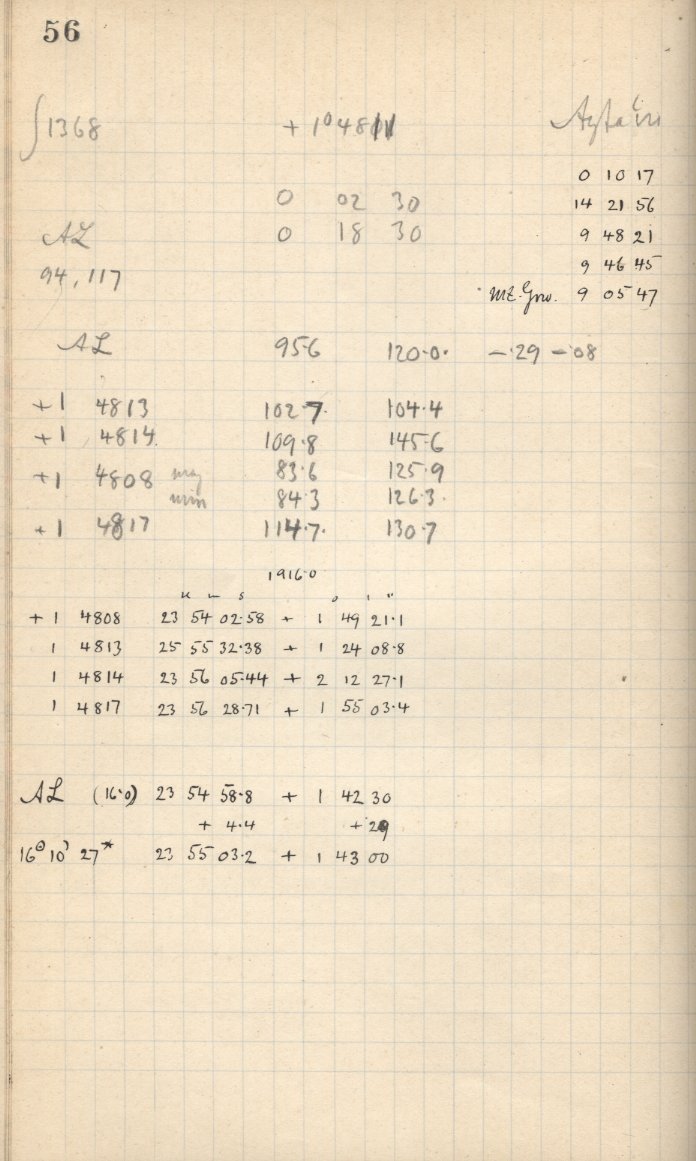 56
∫1368 + 1° 48
0 10 17
0 02 30 14 21 56
AL 0 18 30 9 48 21
94, 117 9 46 45
Mt. Grw. 9 05 47
AL 95·6 120·0· – ·29 – ·08
+1 4813 102·7· 104·4
+1 4814 109·8 145·6
+1 4808 maj 83·6 125·9
min 84·3 126·3
+1 4817 114·7· 130·7
1916·0
H m s ° ' "
+ 1 4808 23 54 02·58 + 1 49 21·1
1 4813 25 55 32·38 + 1 24 08·8
1 4814 23 56 05·44 + 2 12 27·1
1 4817 23 56 28·71 + 1 55 03·4
AL (16·0) 23 54 58·8 + 1 42 30
+ 4·4 + 29
16 10 27 23 55 03·2 + 1 43 00